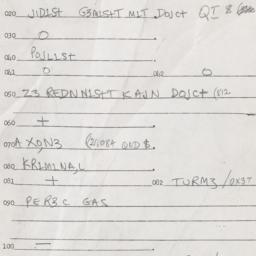 020 JIDIST G3AISHT MIT DOJCT QI &
030 O
040 POJLLST
041 O 042 O
050 Z3 REDNNISHT KAJN DOJCT (K12
060 +
070 A XON3 QND $.
080 KRIMINAL
081 + 082 TURM3/0X3T
090 PER3C GAS
100 —